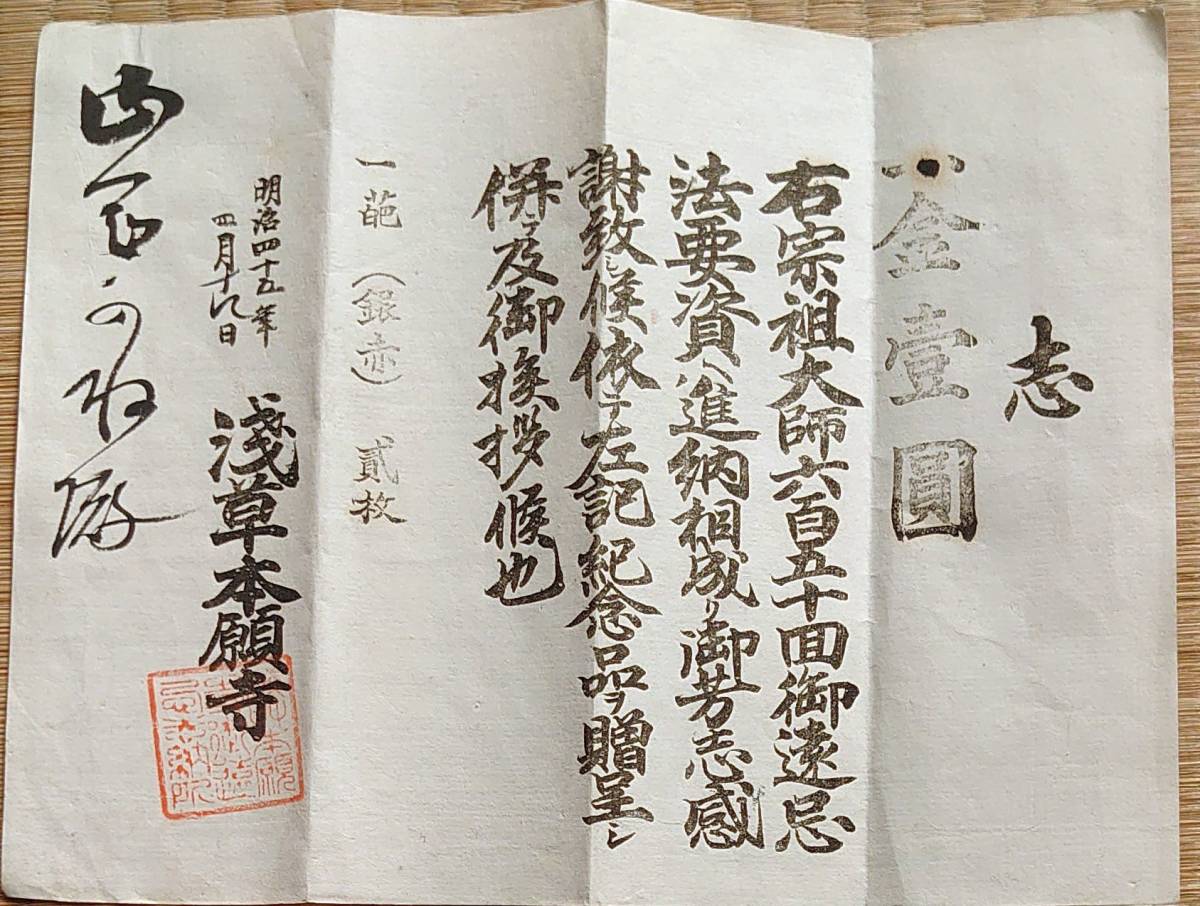 志
一金壹圓
右宗祖大師六百五十回御遠忌
法要資ヘ進納相成リ御芳志感
謝致シ候依テ左記紀念品ヲ贈呈シ
併テ及御挨拶候也
一葩（銀赤）貳枚
明治四十五年
四月十八日
淺草本願寺